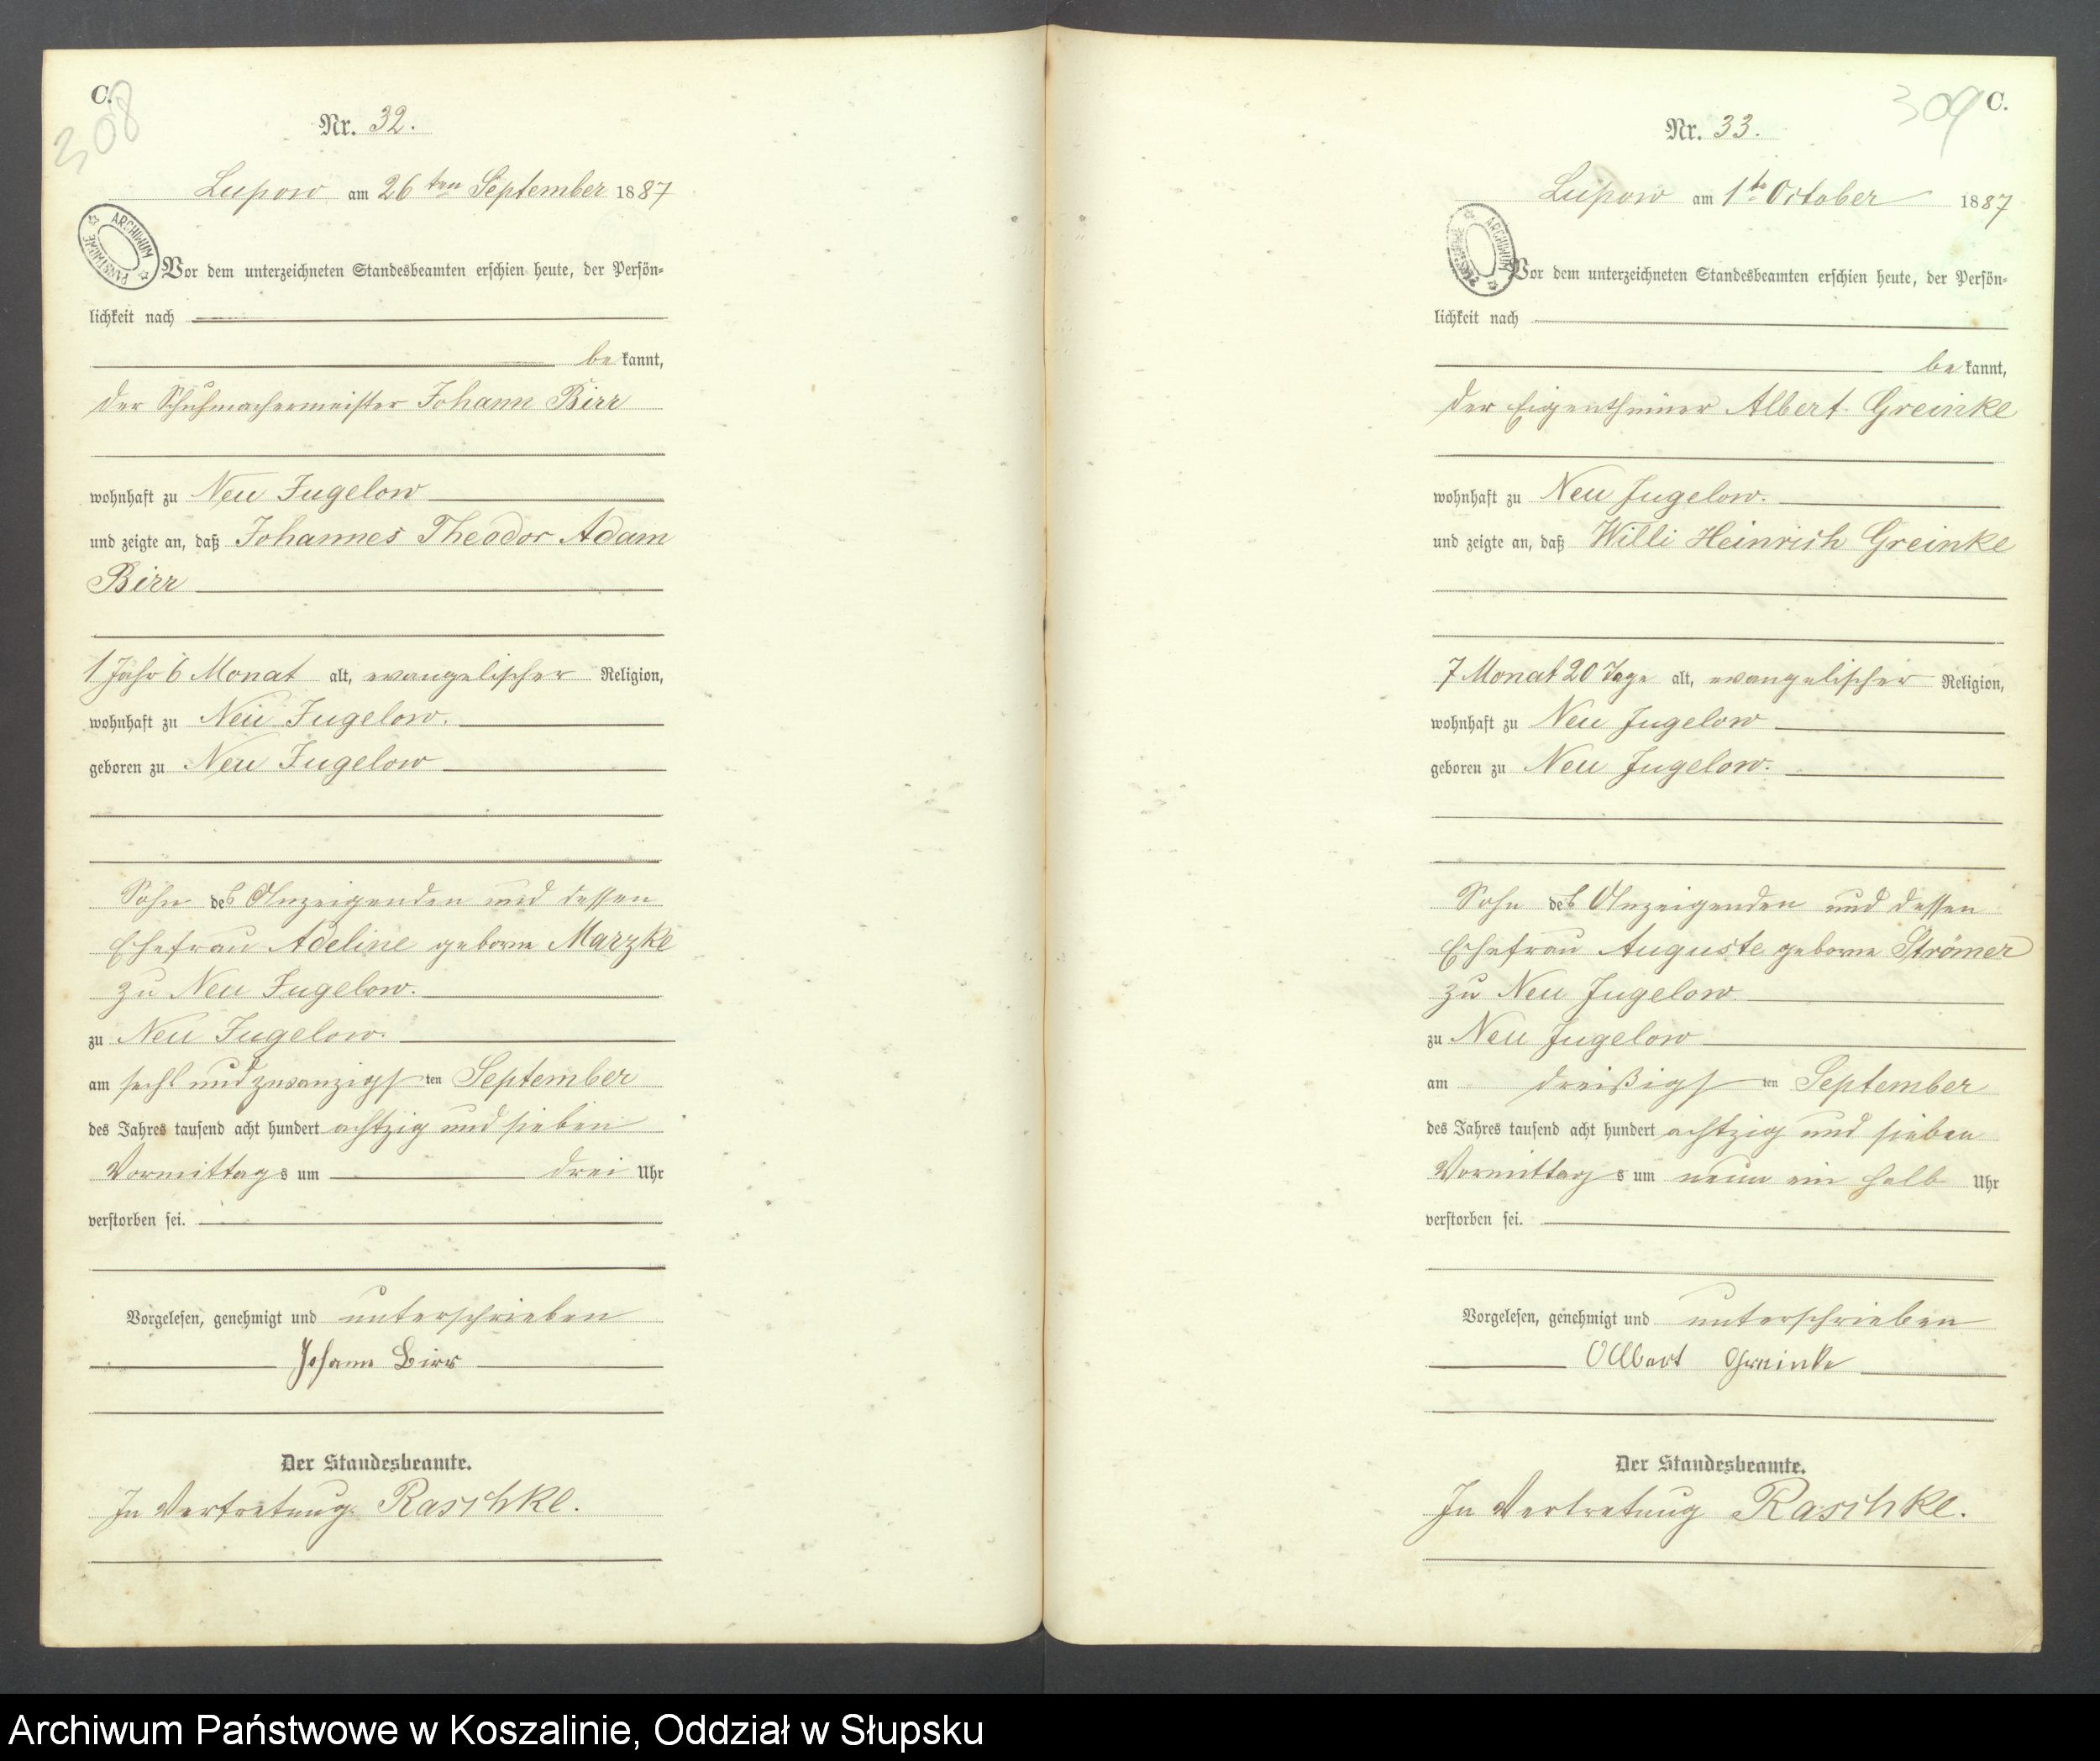 C.
308
Nr. 32.
Lupow am 26ten September 1887
ARCHIWUM PAŃSTWOWE
Vor dem unterzeichneten Standesbeamten erschien heute, der Persön-
lichkeit nach
bekannt,
der Schuhmachermeister Johann Birr
wohnhaft zu Neu Jugelow
und zeigte an, daß Johannes Theodor Adam
Birr
1 Jahr 6 Monat alt, evangelischer Religion,
wohnhaft zu Neu Jugelow.
geboren zu Neu Jugelow
Sohn des Anzeigenden und dessen
Ehefrau Adeline geborne Marzke
zu Neu Jugelow.
zu Neu Jugelow.
am sechs und zwanzigsten September
des Jahres tausend acht hundert achtzig und sieben
Vormittags um drei Uhr
verstorben sei.
Vorgelesen, genehmigt und unterschrieben
Johann Birr
Der Standesbeamte.
In Vertretung Raschke.
309 C.
Nr. 33.
Lupow am 1te October 1887
ARCHIWUM PAŃSTWOWE
Vor dem unterzeichneten Standesbeamten erschien heute, der Persön-
lichkeit nach
bekannt,
der Eigenthümer Albert Greinke
wohnhaft zu Neu Jugelow.
und zeigte an, daß Willi Heinrich Greinke
7 Monat 20 Tage alt, evangelischer Religion,
wohnhaft zu Neu Jugelow
geboren zu Neu Jugelow.
Sohn des Anzeigenden und dessen
Ehefrau Auguste geborne Strömer
zu Neu Jugelow.
zu Neu Jugelow
am dreißigsten September
des Jahres tausend acht hundert achtzig und sieben
Vormittags um neun ein halb Uhr
verstorben sei.
Vorgelesen, genehmigt und unterschrieben
Albert Greinke
Der Standesbeamte.
In Vertretung Raschke.
Archiwum Państwowe w Koszalinie, Oddział w Słupsku